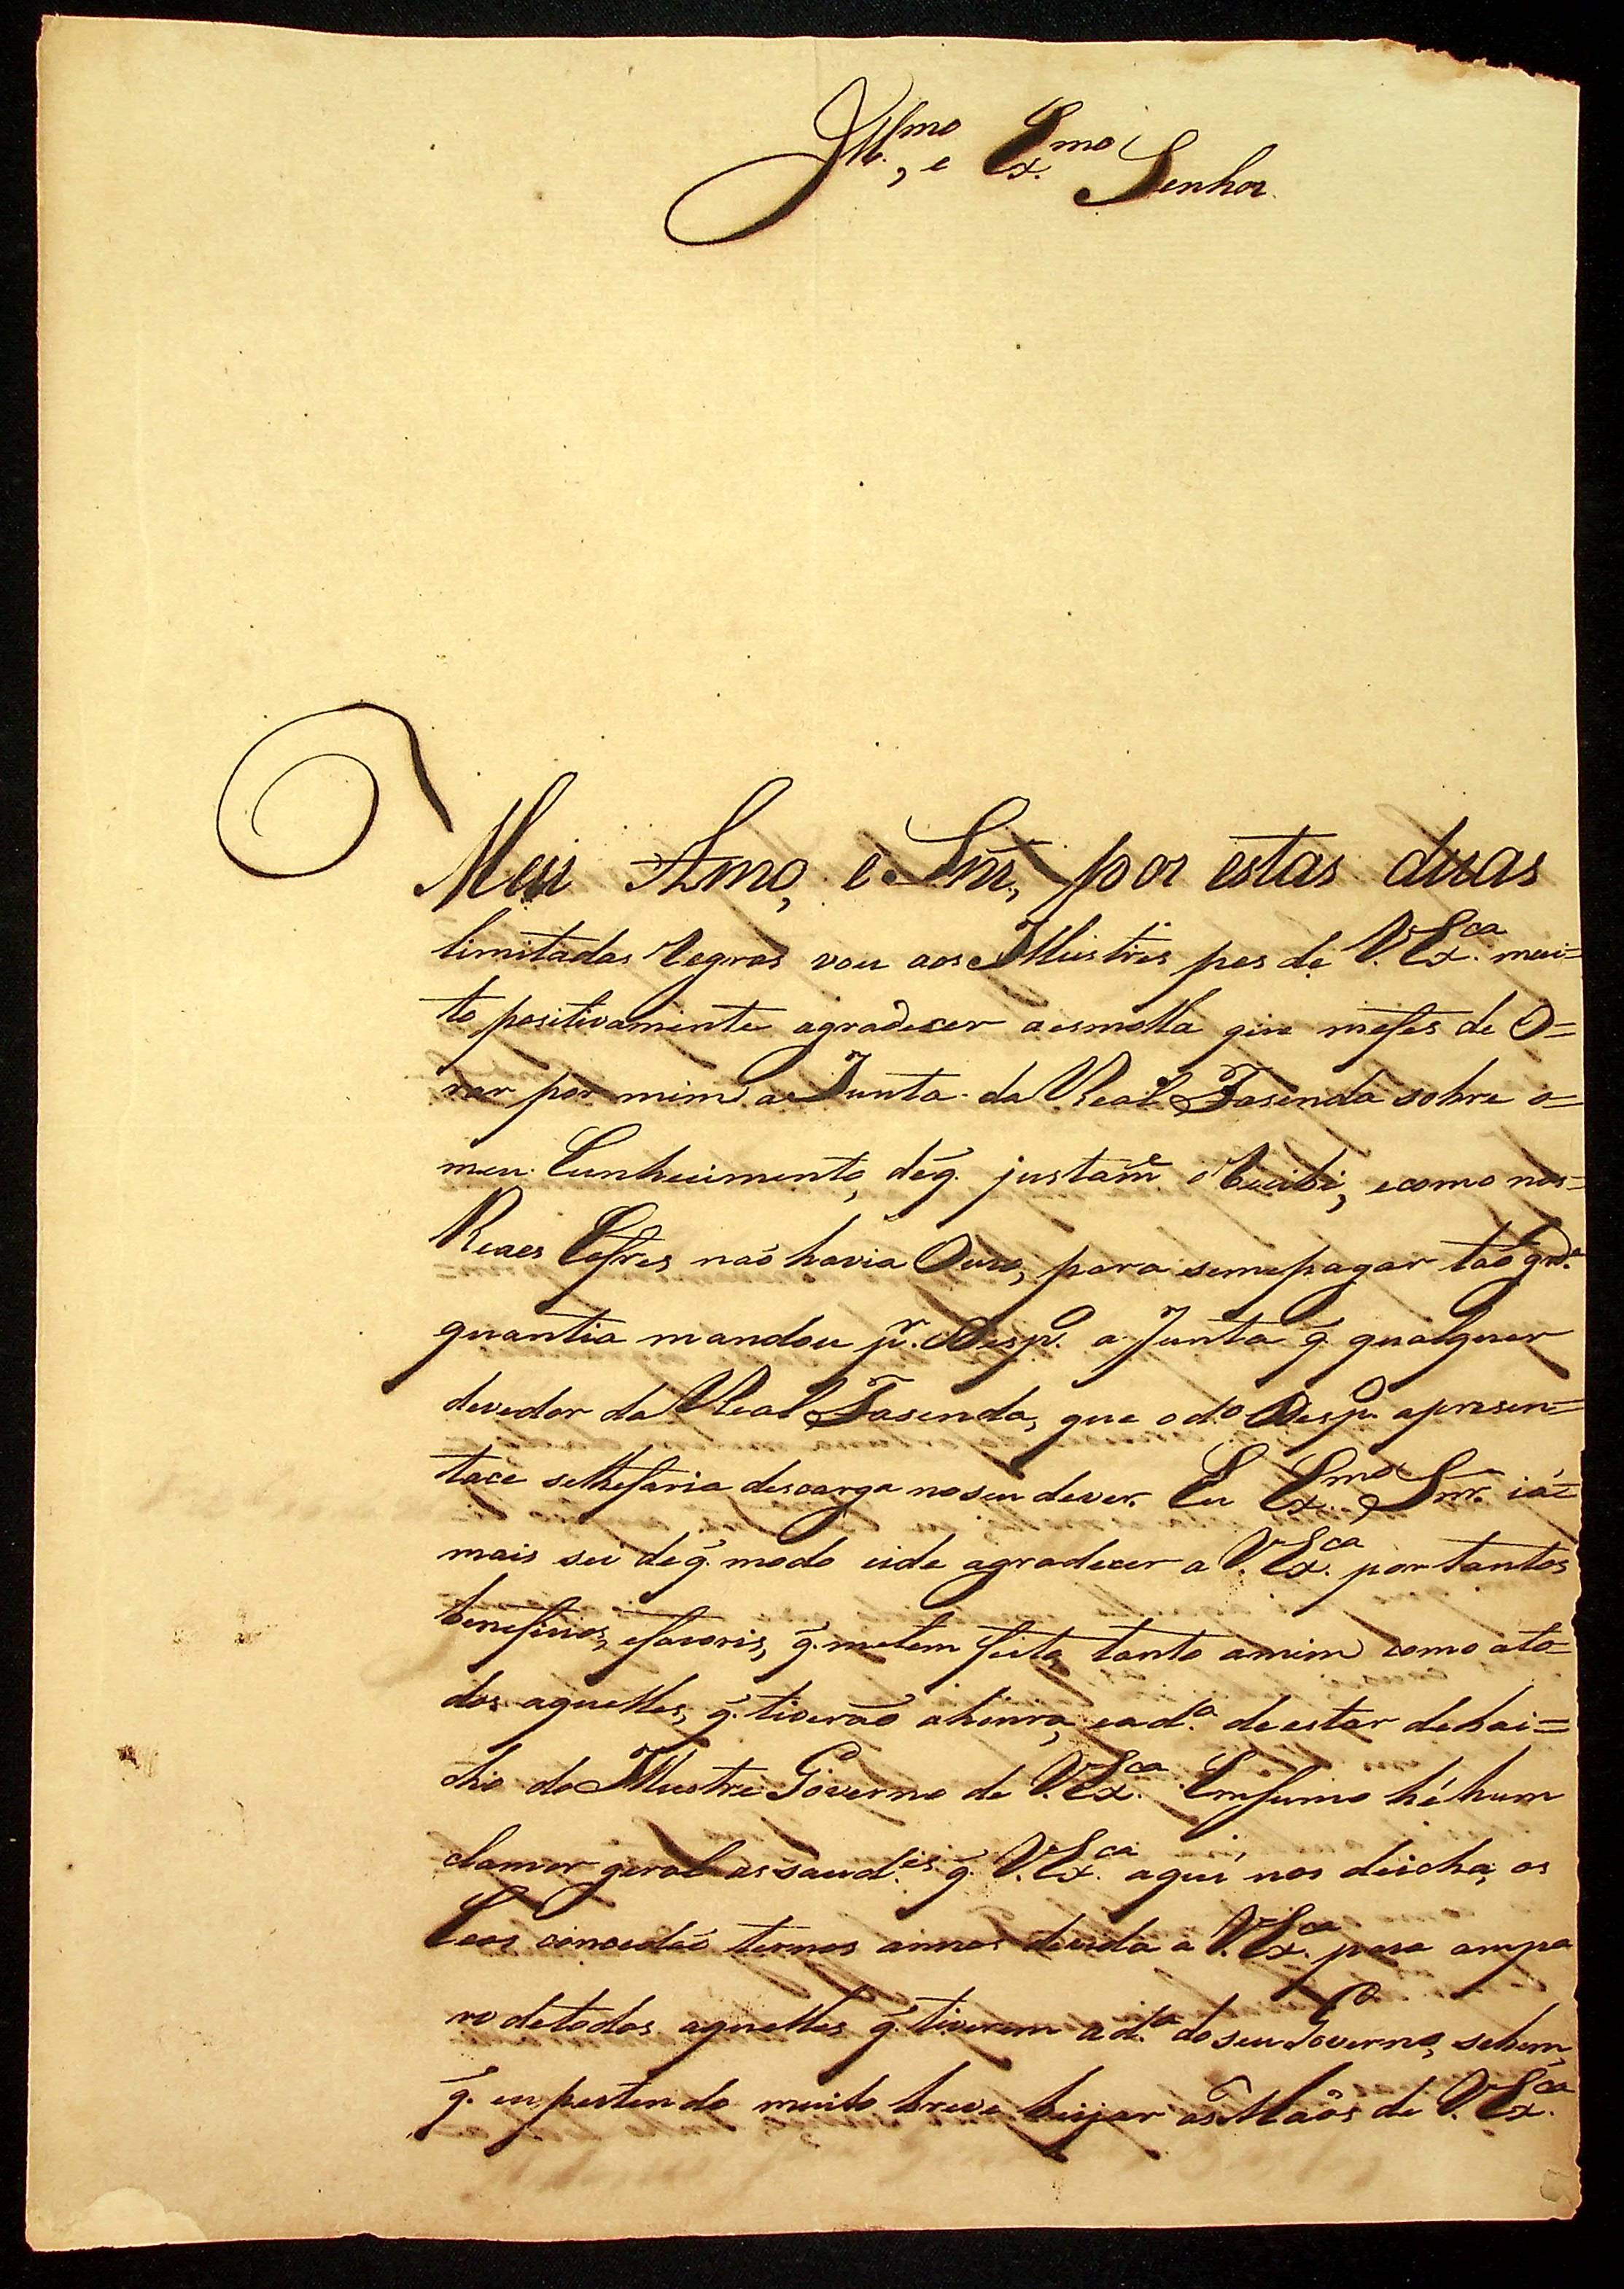 Ill.mo, e Ex.mo Senhor
Meu Amo, e Snr, por estas duas
limitadas regras vou aos Illustres pes de V. Ex.ca mui=
to positivamente agradecer aesmolla que mefes de O=
rar por mim a Junta da Real Fasenda sobre o=
meu Cunhecimento, deq̃. justam.e o Recibi, ecomo nos=
Reaes Cofres naõ havia Ouro, para semepagar taõ gr.de
quantia mandou p.r Desp.o a Junta q̃. qualquer
devedor da Real Fasenda, que o d.o Desp.o apresen=
tace selhefaria descarga noseu dever. Eu Ex.mo Snr. iá=
mais sei deq̃. modo eide agradecer a V. Ex.ca por tantos
beneficios, efavoris, q̃. metem feito tanto amim como ato=
dos aquelles, q̃. tiveraõ ahonra, ead.a deestar debai=
cho do Illustre Governo de V. Ex.ca Emfumo hé hum
clamor geral as saud.es q̃. V. Ex.ca aqui nos deicha, os
Ceos concedaõ ternos annos devida a V. Ex.ca para ampa
ro detodos aquelles q̃. tiverem a d.a do seu Governo, sebem,
q̃. eu pertendo muito breve beijar as Maõs de V. Ex.ca